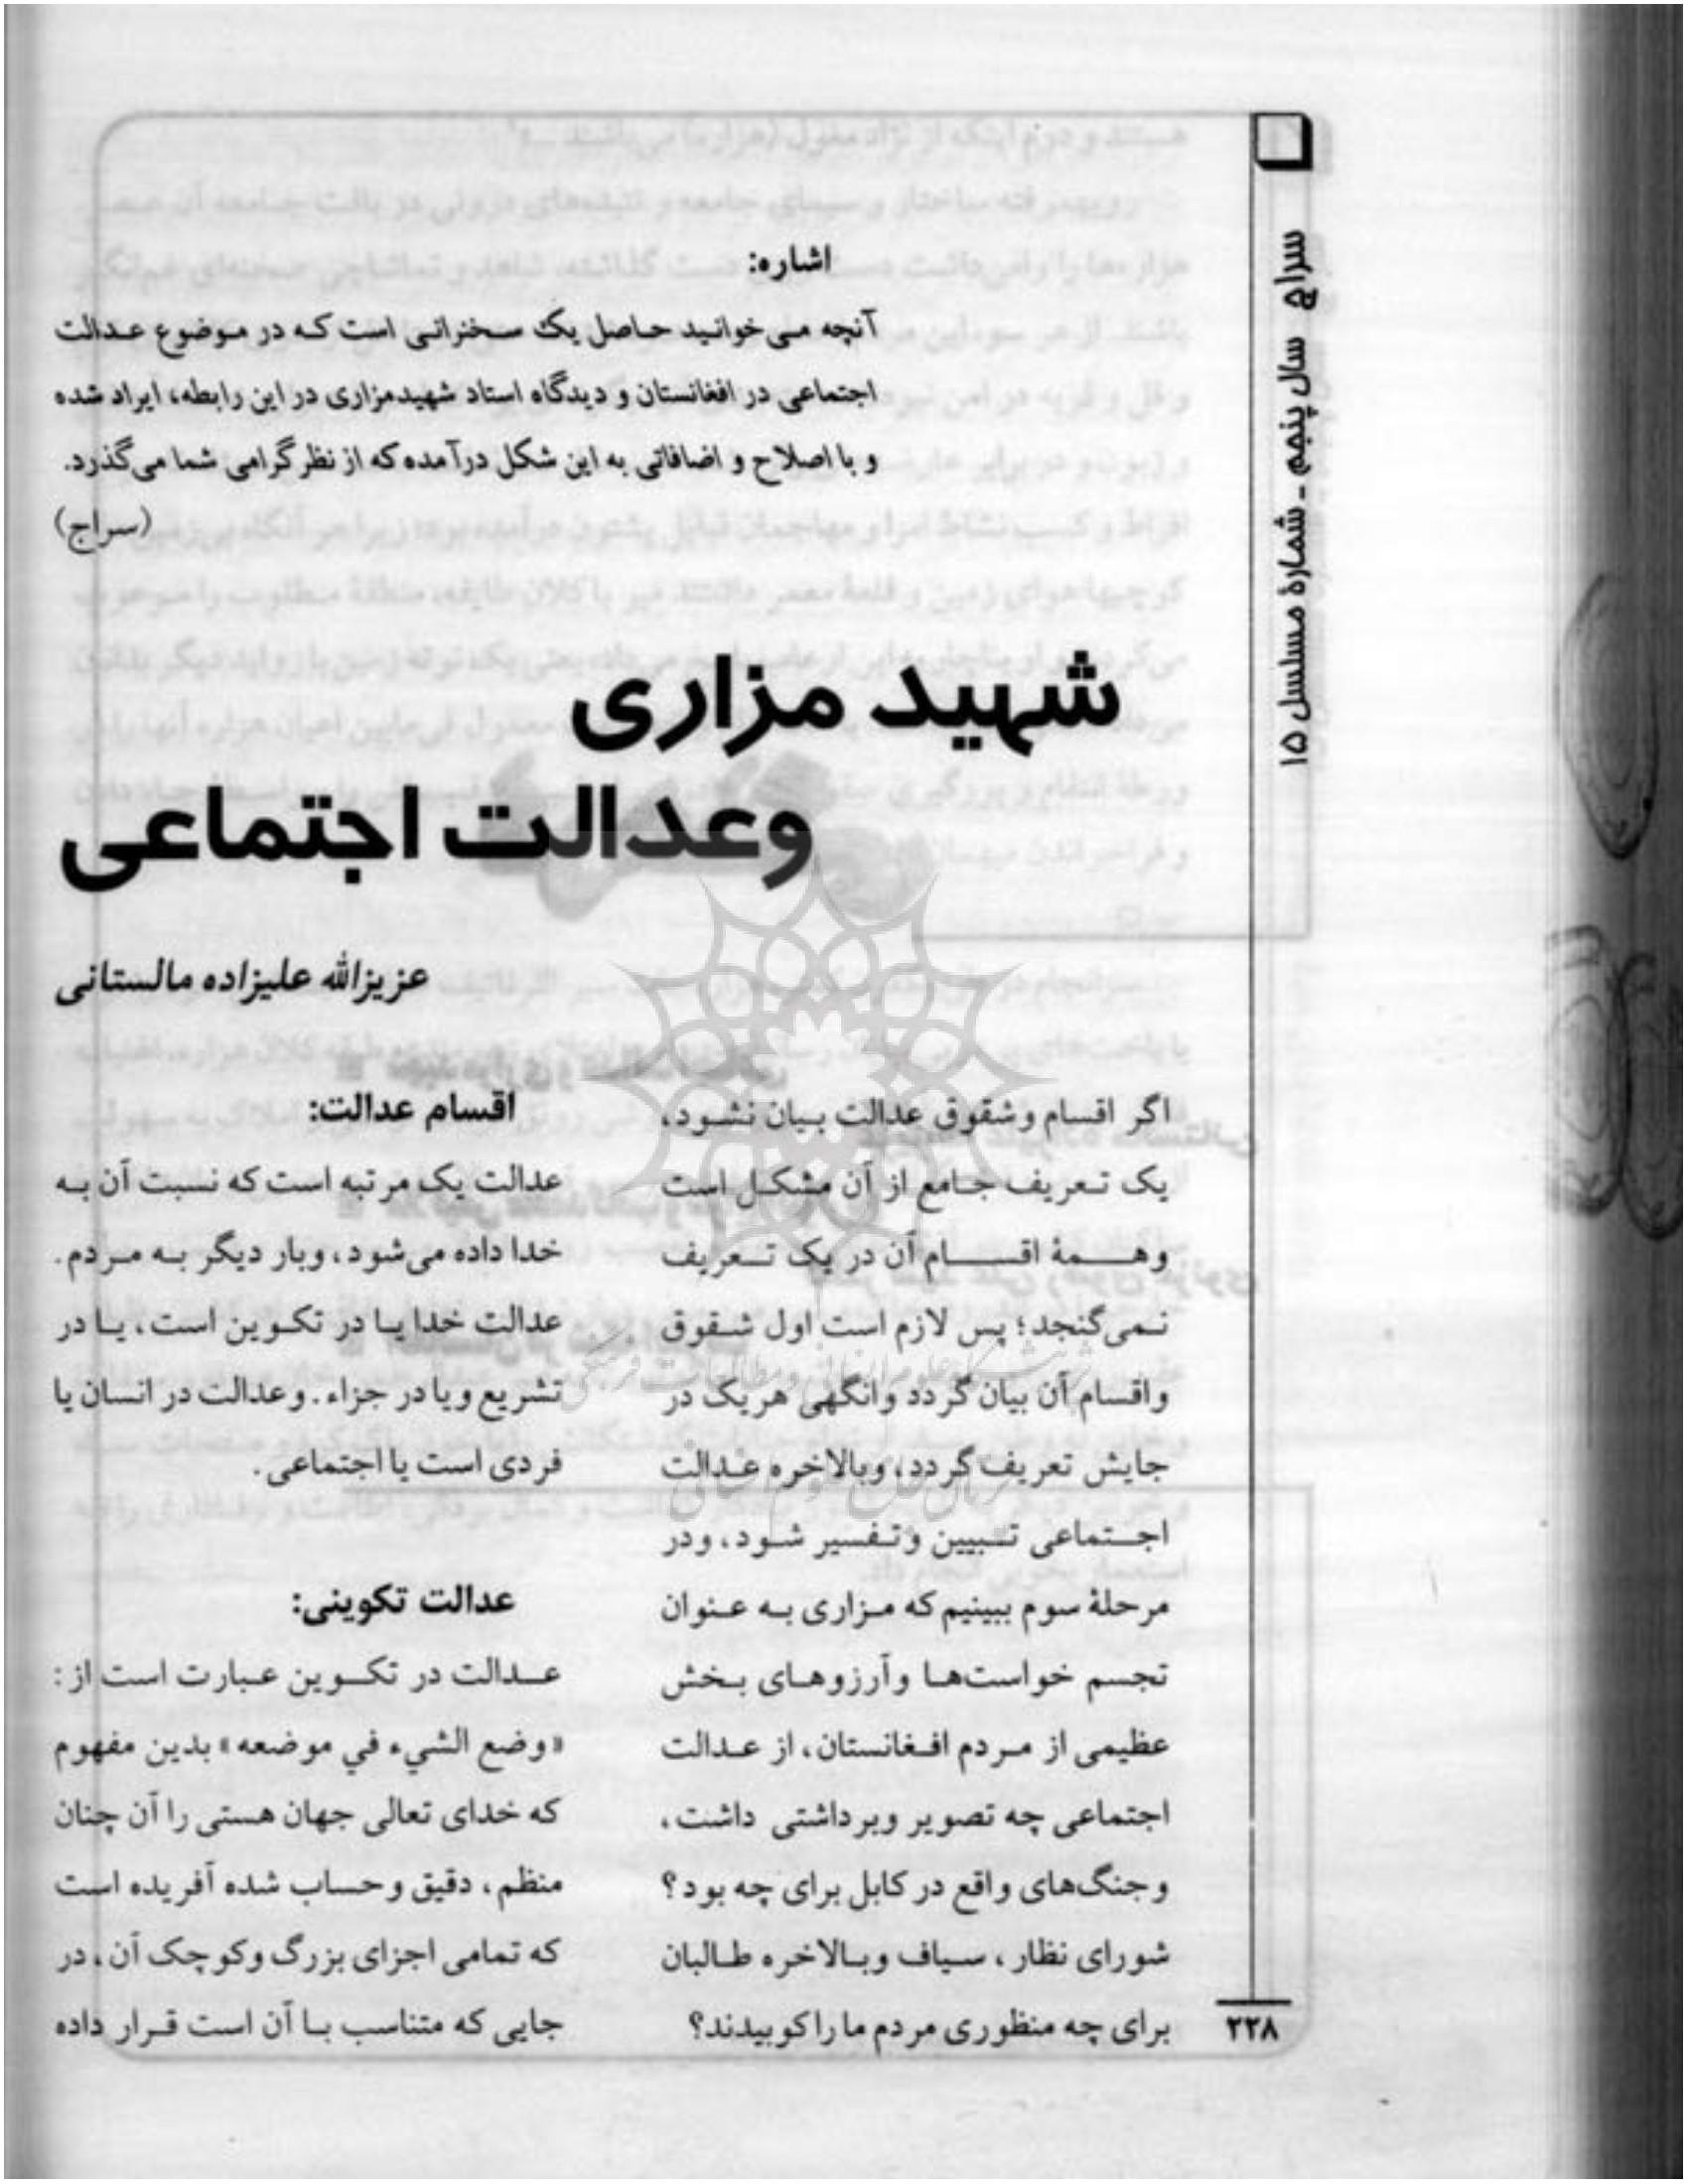 سراج سال پنجم ـ شمارۀ مسلسل ۱۵
اشاره:
آنچه می‌خوانید حاصل یک سخنرانی است که در موضوع عدالت
اجتماعی در افغانستان و دیدگاه استاد شهیدمزاری در این رابطه، ایراد شده
و با اصلاح و اضافاتی به این شکل درآمده که از نظر گرامی شما می‌گذرد.
(سراج)
شهید مزاری
وعدالت اجتماعی
عزیزالله علیزاده مالستانی
اگر اقسام وشقوق عدالت بیان نشود،
یک تعریف جامع از آن مشکل است
وهمۀ اقسام آن در یک تعریف
نمی‌گنجد؛ پس لازم است اول شقوق
واقسام آن بیان گردد وانگهی هریک در
جایش تعریف گردد، وبالاخره عدالت
اجتماعی تبیین وتفسیر شود، ودر
مرحلۀ سوم ببینیم که مزاری به عنوان
تجسم خواست‌ها وآرزوهای بخش
عظیمی از مردم افغانستان، از عدالت
اجتماعی چه تصویر وبرداشتی داشت،
وجنگ‌های واقع در کابل برای چه بود؟
شورای نظار، سیاف وبالاخره طالبان
برای چه منظوری مردم ما را کوبیدند؟
اقسام عدالت:
عدالت یک مرتبه است که نسبت آن به
خدا داده می‌شود، وبار دیگر به مردم.
عدالت خدا یا در تکوین است، یا در
تشریع ویا در جزاء. وعدالت در انسان یا
فردی است یا اجتماعی.
عدالت تکوینی:
عدالت در تکوین عبارت است از:
«وضع الشيء في موضعه» بدین مفهوم
که خدای تعالی جهان هستی را آن چنان
منظم، دقیق وحساب شده آفریده است
که تمامی اجزای بزرگ وکوچک آن، در
جایی که متناسب با آن است قرار داده
۲۲۸